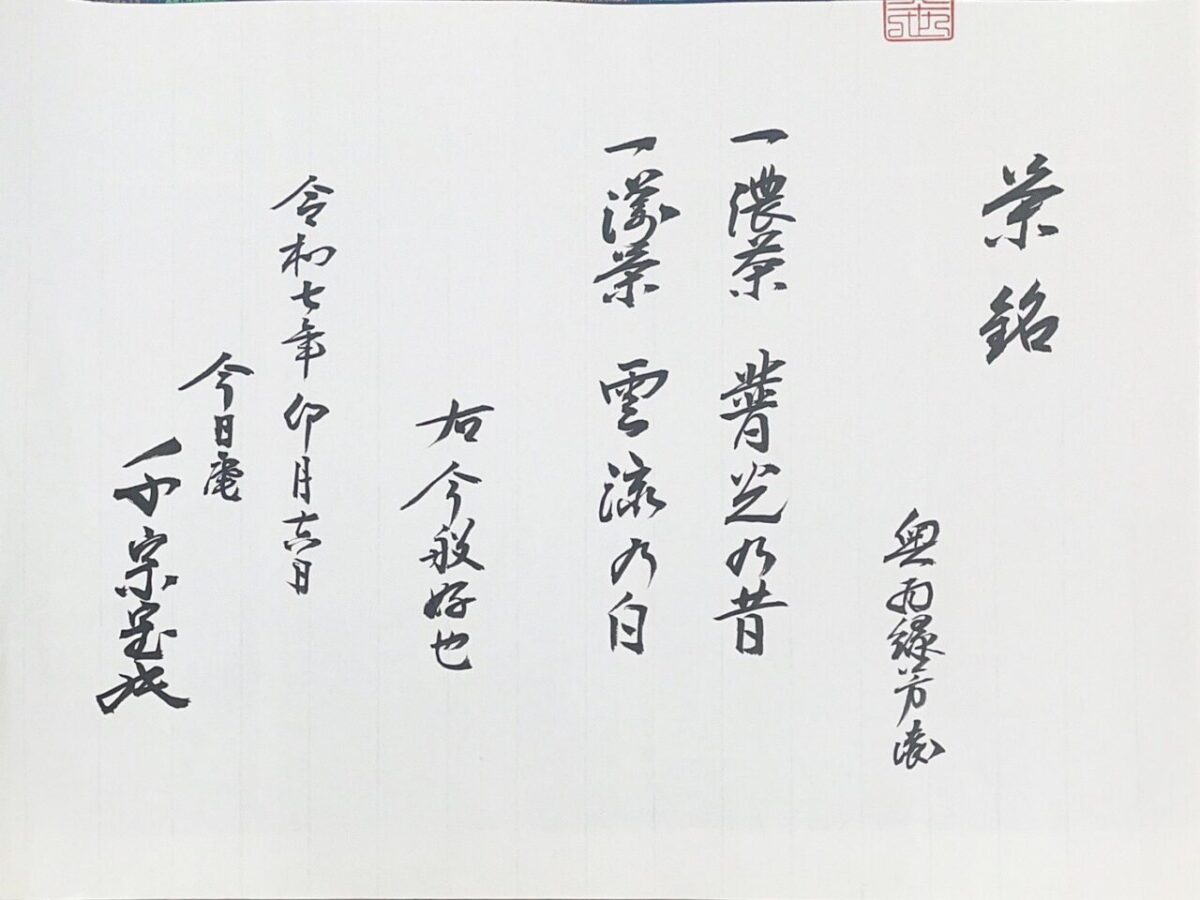 茶銘
奥西緑芳園
一濃茶 光乃昔
一薄茶 雲乃白
右今般好也
令和七年卯月十六日
今日庵
千宗室